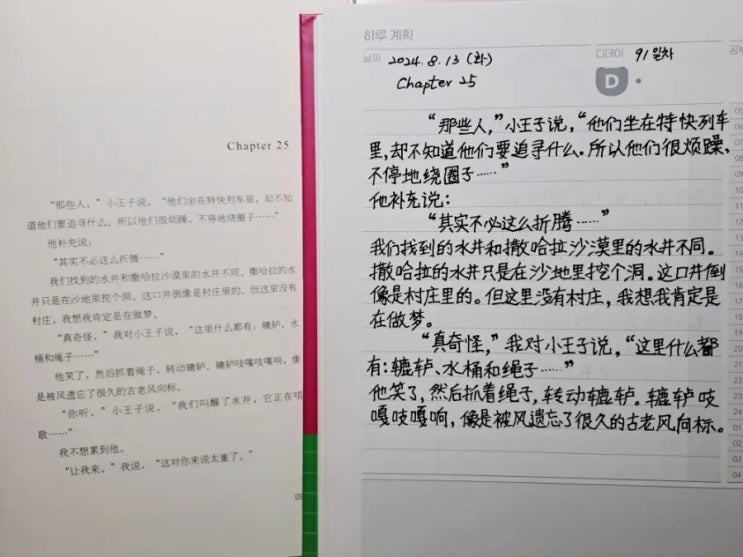 Chapter 25
“那些人，”小王子说，“他们坐在特快列车里，却不知
道他们要追寻什么。所以他们很烦躁，不停地绕圈子……”
他补充说：
“其实不必这么折腾……”
我们找到的水井和撒哈拉沙漠里的水井不同。撒哈拉的水
井只是在沙地里挖个洞。这口井倒像是村庄里的。但这里没有
村庄，我想我肯定是在做梦。
“真奇怪，”我对小王子说，“这里什么都有：辘轳、水
桶和绳子……”
他笑了，然后抓着绳子，转动辘轳。辘轳吱嘎吱嘎响，像
是被风遗忘了很久的古老风向标。
“你听，”小王子说，“我们叫醒了水井，它正在唱
歌……”
我不想累到他。
“让我来，”我说，“这对你来说太重了。”
하루 계획
날짜 2024.8.13 (화)
디데이 91일차
Chapter 25
D
“那些人，”小王子说，“他们坐在特快列车
里，却不知道他们要追寻什么。所以他们很烦躁，
不停地绕圈子……”
他补充说：
“其实不必这么折腾……”
我们找到的水井和撒哈拉沙漠里的水井不同。
撒哈拉的水井只是在沙地里挖个洞。这口井倒
像是村庄里的。但这里没有村庄，我想我肯定是
在做梦。
“真奇怪，”我对小王子说，“这里什么都
有：辘轳、水桶和绳子……”
他笑了，然后抓着绳子，转动辘轳。辘轳吱
嘎吱嘎响，像是被风遗忘了很久的古老风向标。